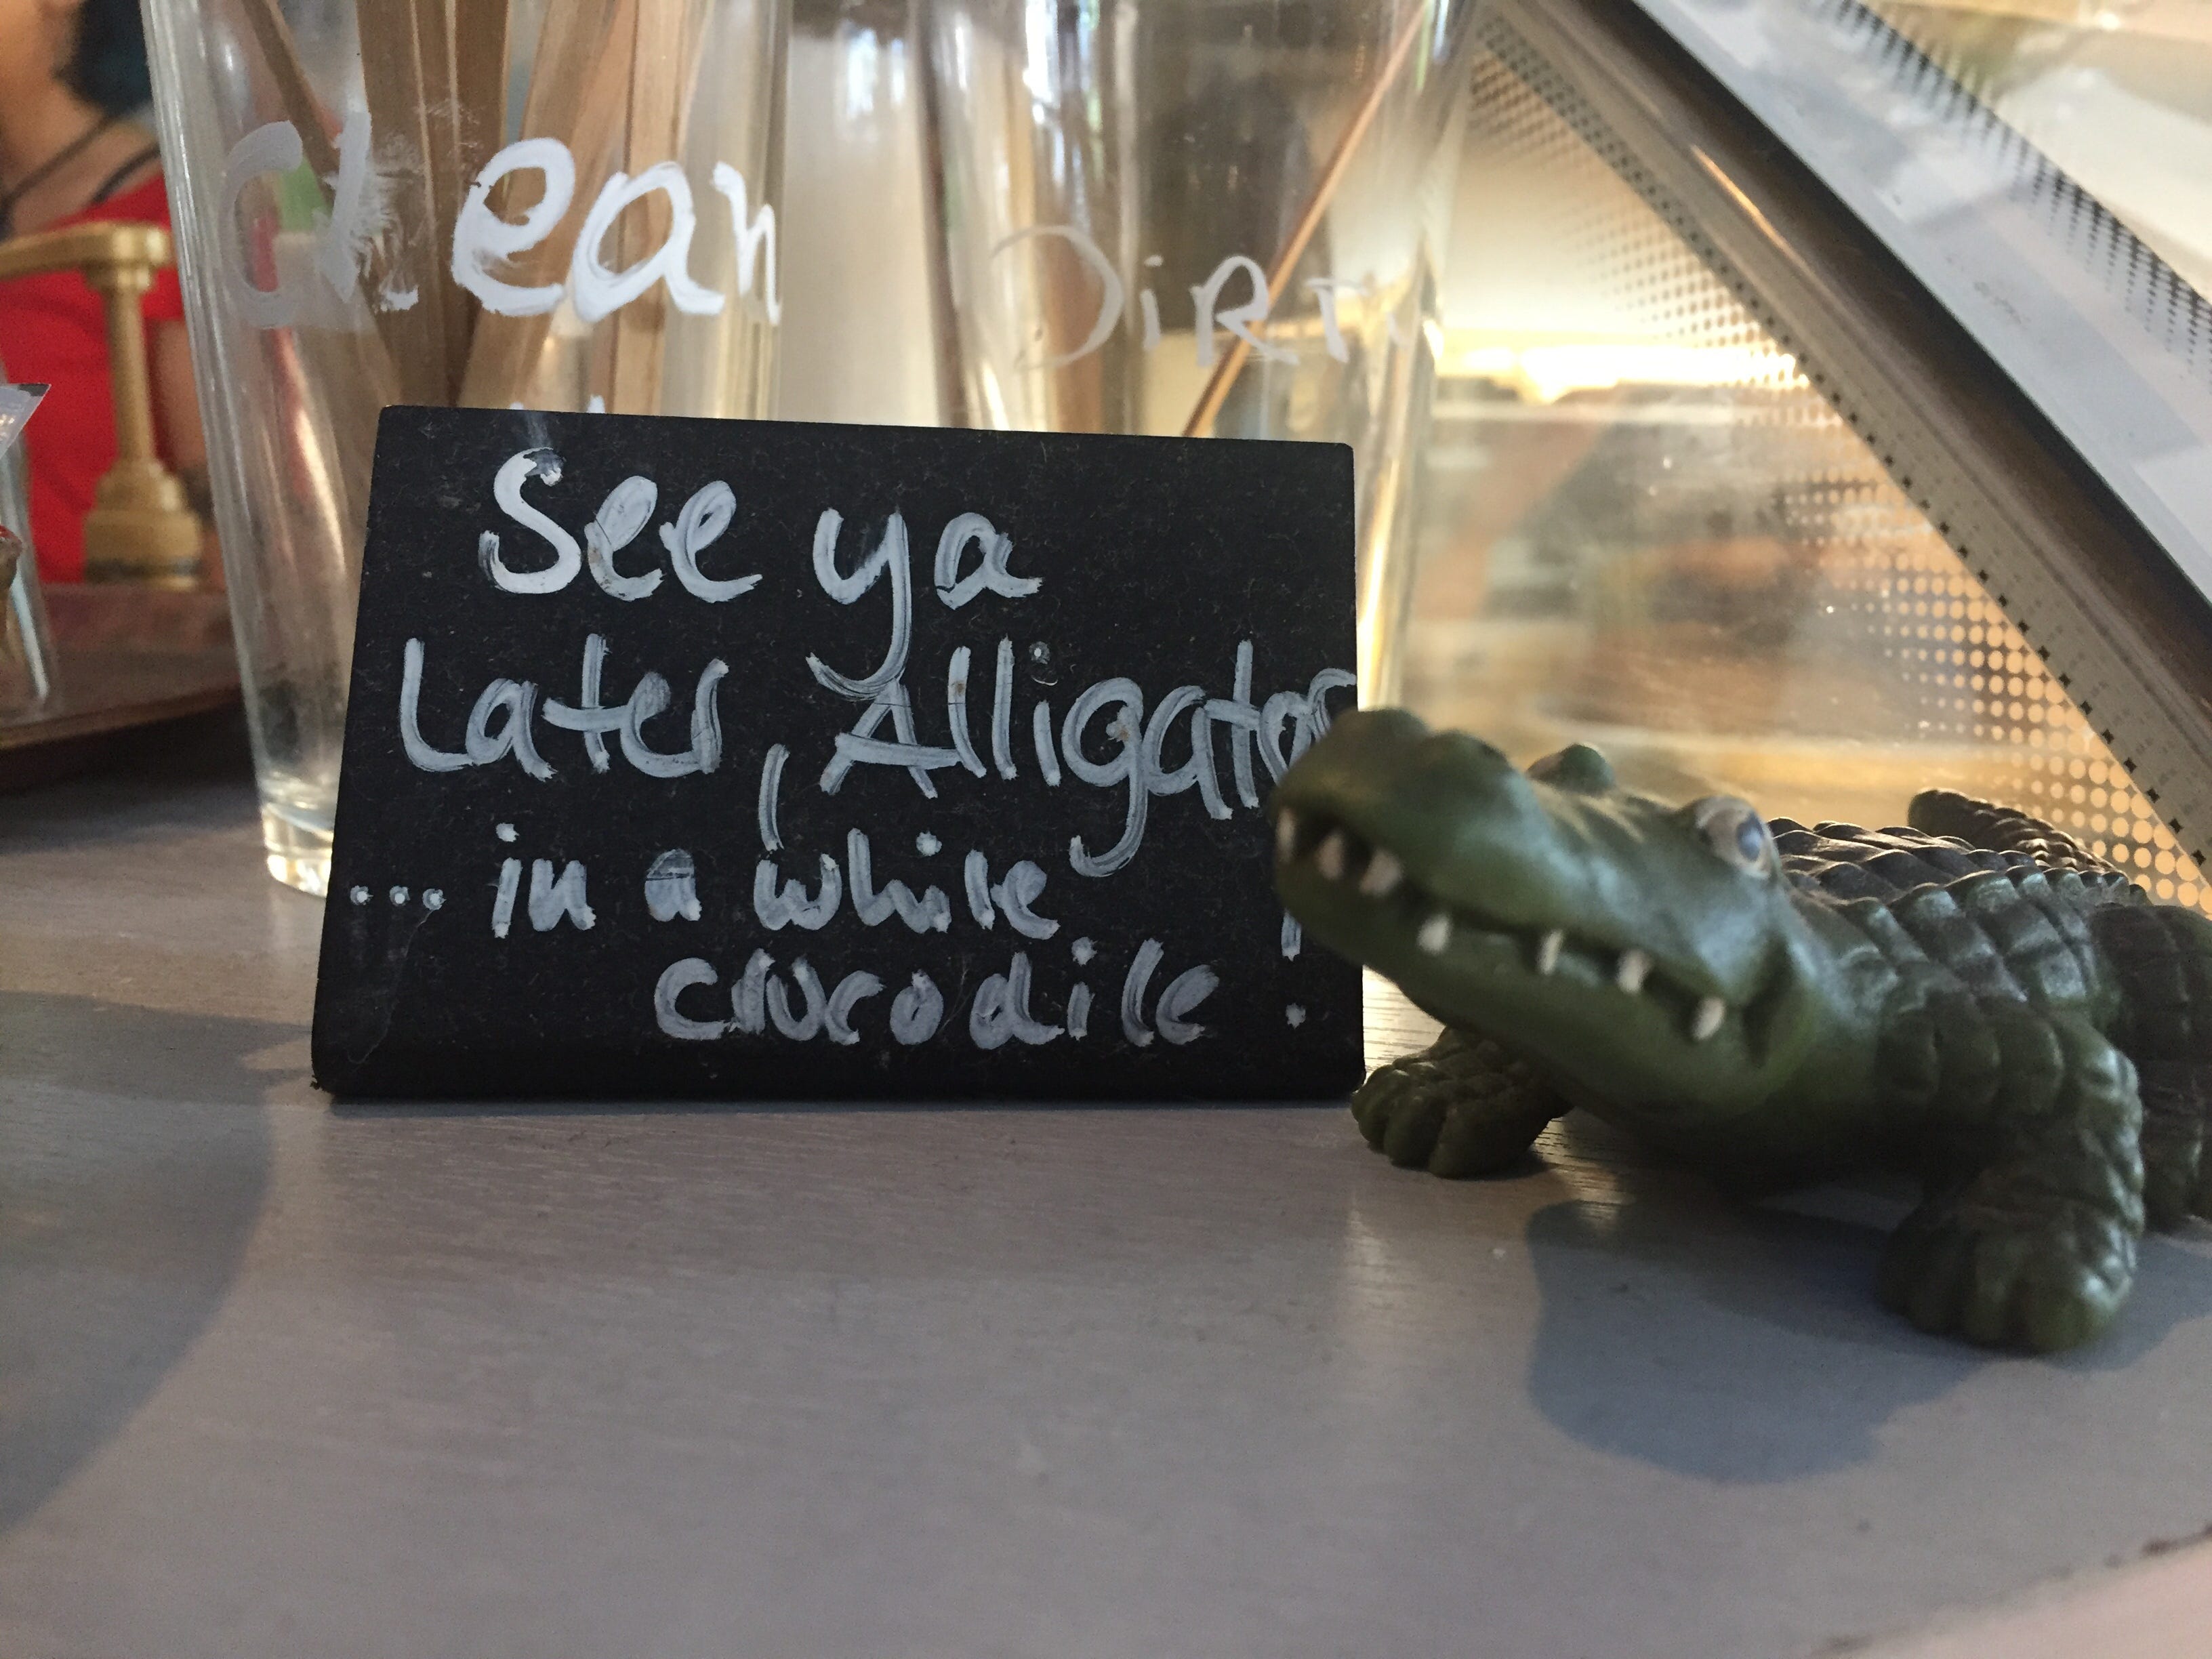 clean
DiRT
See ya
Later, Alligator
... in a while
crocodile !